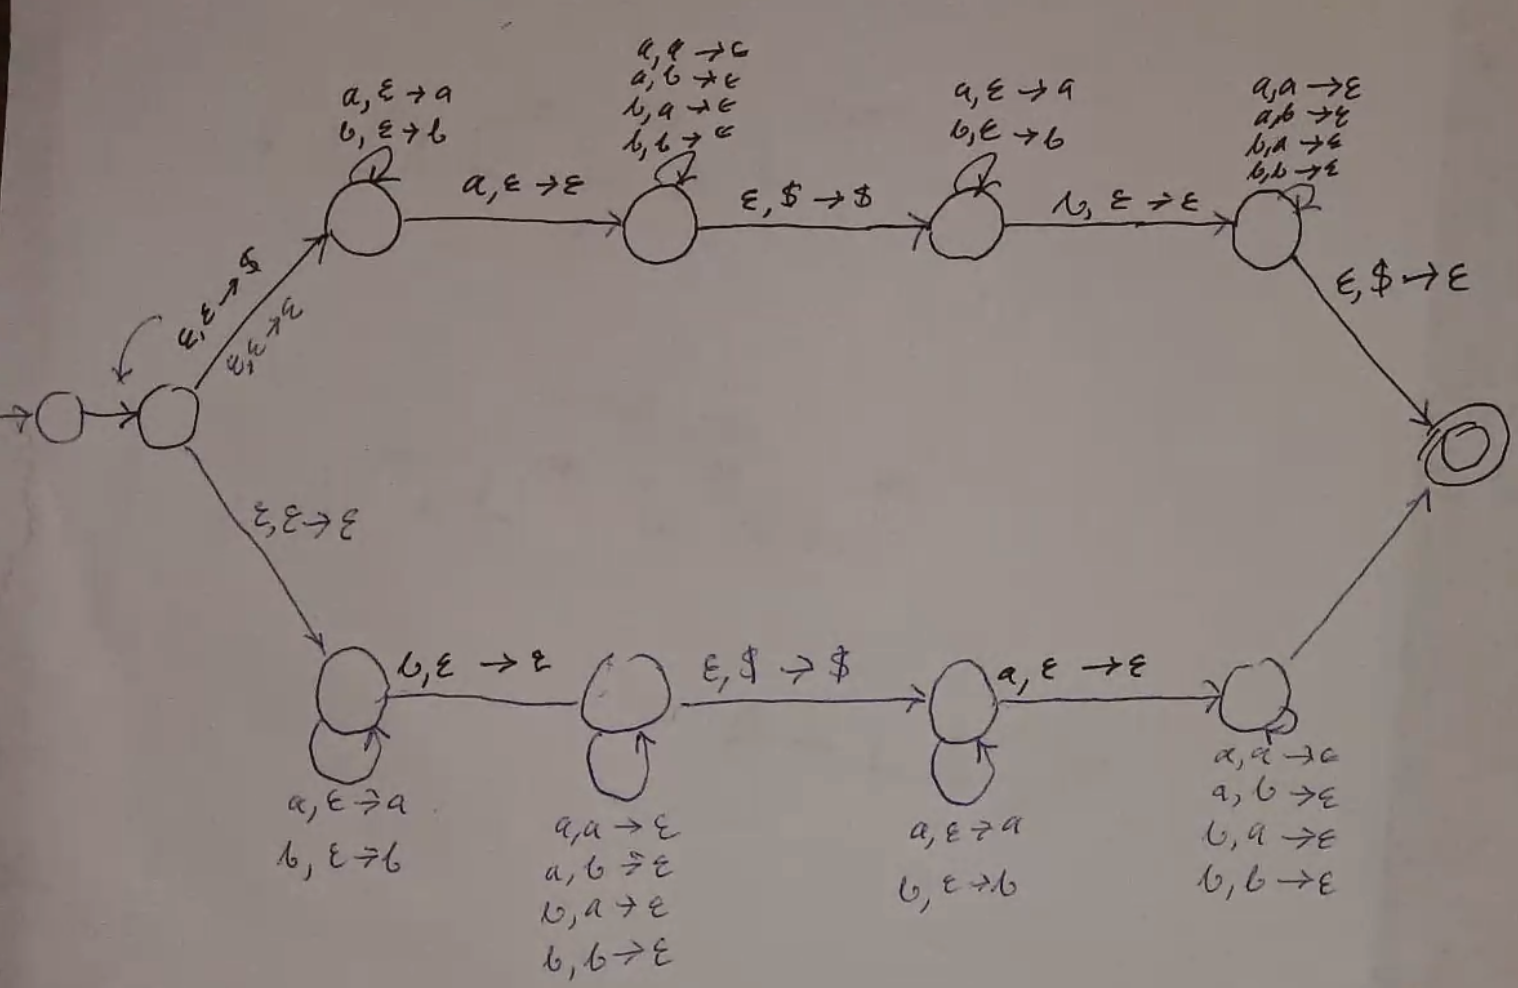 a, a → ε
a, b → ε
b, a → ε
b, b → ε
a, ε → a
b, ε → b
a, ε → a
b, ε → b
a,a → ε
a,b → ε
b,a → ε
b,b → ε
a, ε → ε
ε, $ → $
b, ε → ε
ε, ε → $
ε, ε → ε
ε, $ → ε
ε, ε → ε
b, ε → ε
ε, $ → $
a, ε → ε
a, ε → a
b, ε → b
a,a → ε
a, b → ε
b, a → ε
b, b → ε
a, ε → a
b, ε → b
a, a → ε
a, b → ε
b, a → ε
b, b → ε